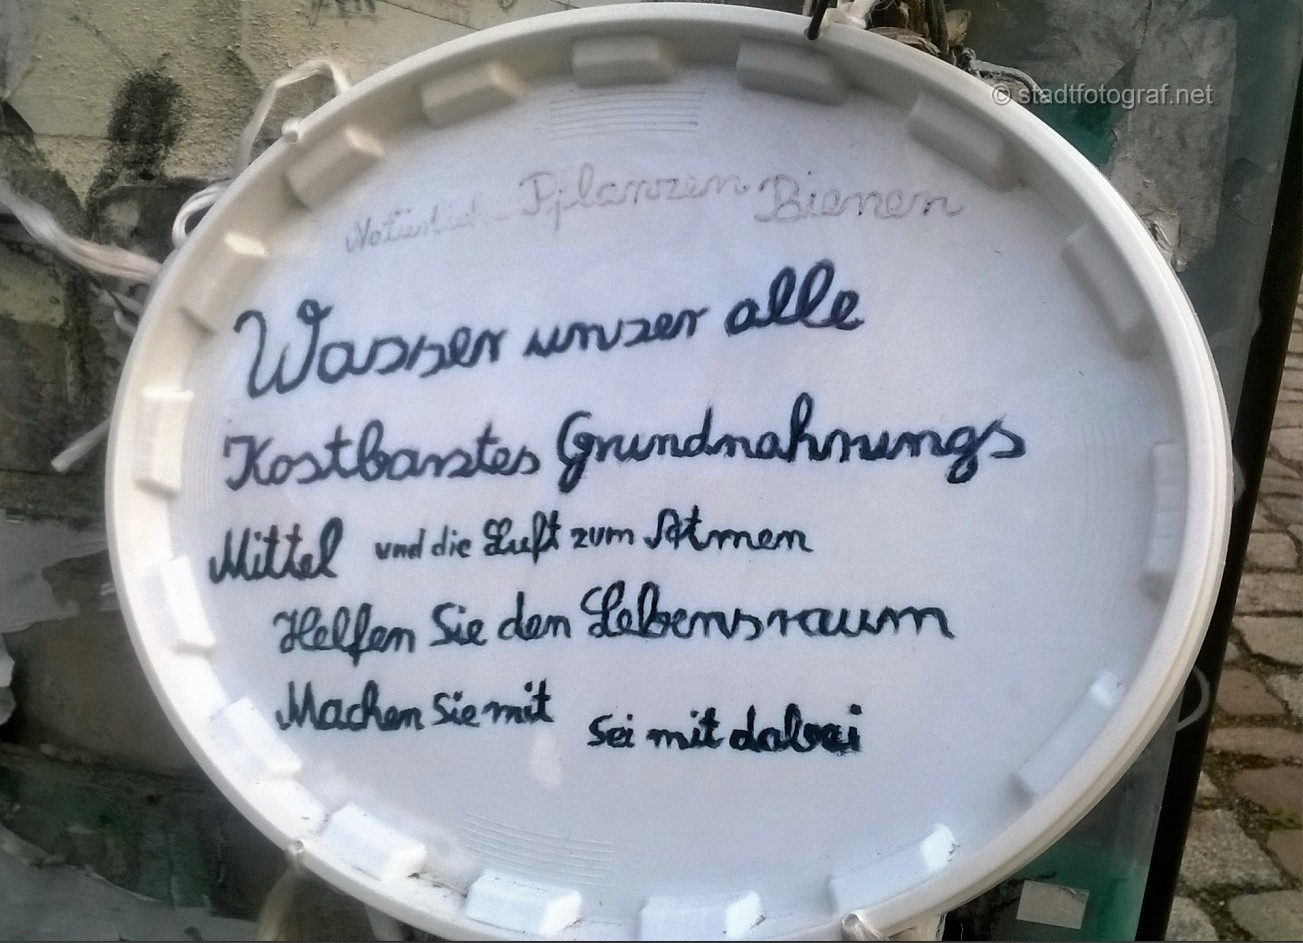 © stadtfotograf.net
Natürliche Pflanzen Bienen
Wasser unser alle
Kostbarstes Grundnahrungs
Mittel und die Luft zum Atmen
Helfen Sie den Lebensraum
Machen Sie mit sei mit dabei